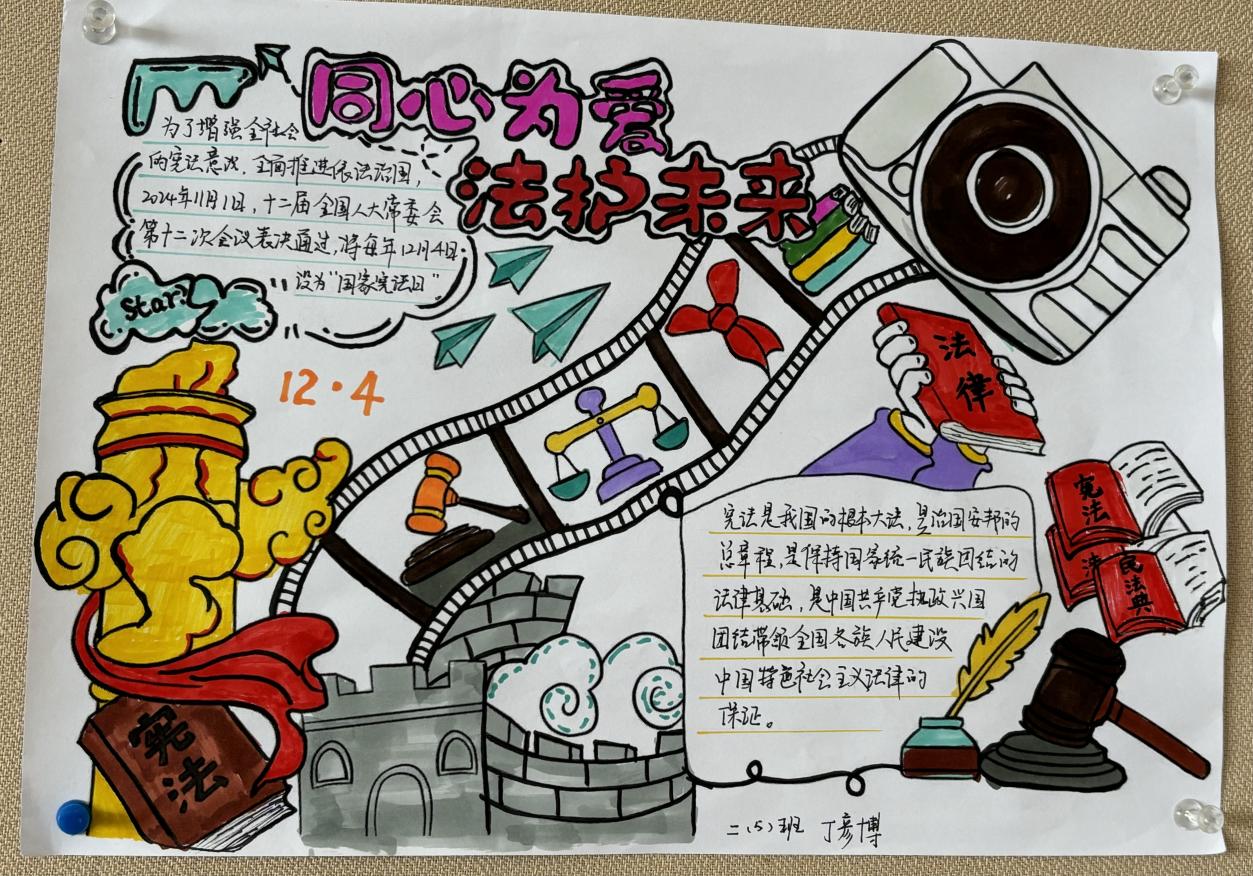 同心为爱
法护未来
为了增强全社会
的宪法意识,全面推进依法治国,
2024年11月1日,十二届全国人大常委会
第十二次会议表决通过,将每年12月4日
设为"国家宪法日"
Star
12·4
法律
宪法
法
民法典
宪法是我国的根本大法,是治国安邦的
总章程,是保持国家统一民族团结的
法律基础,是中国共产党执政兴国
团结带领全国各族人民建设
中国特色社会主义法律的
保证。
宪法
二(5)班 丁彦博